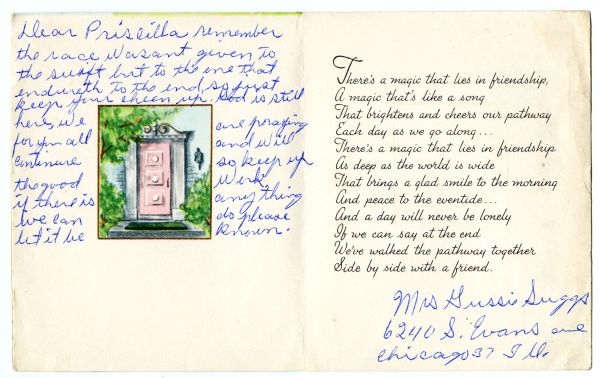 Dear Priscilla remember
the race wasant given to
the swift but to the one that
endureth to the end so just
keep your cheen up. God is still
here, we are praying
for you all and will
continure so keep up
the good work
if there is any thing
we can do please
let it be known.
There's a magic that lies in friendship,
A magic that's like a song
That brightens and cheers our pathway
Each day as we go along...
There's a magic that lies in friendship
As deep as the world is wide
That brings a glad smile to the morning
And peace to the eventide...
And a day will never be lonely
If we can say at the end
We've walked the pathway together
Side by side with a friend.
Mrs Gussie Suggs
6240 S. Evans ave
Chicago 37 Ill.